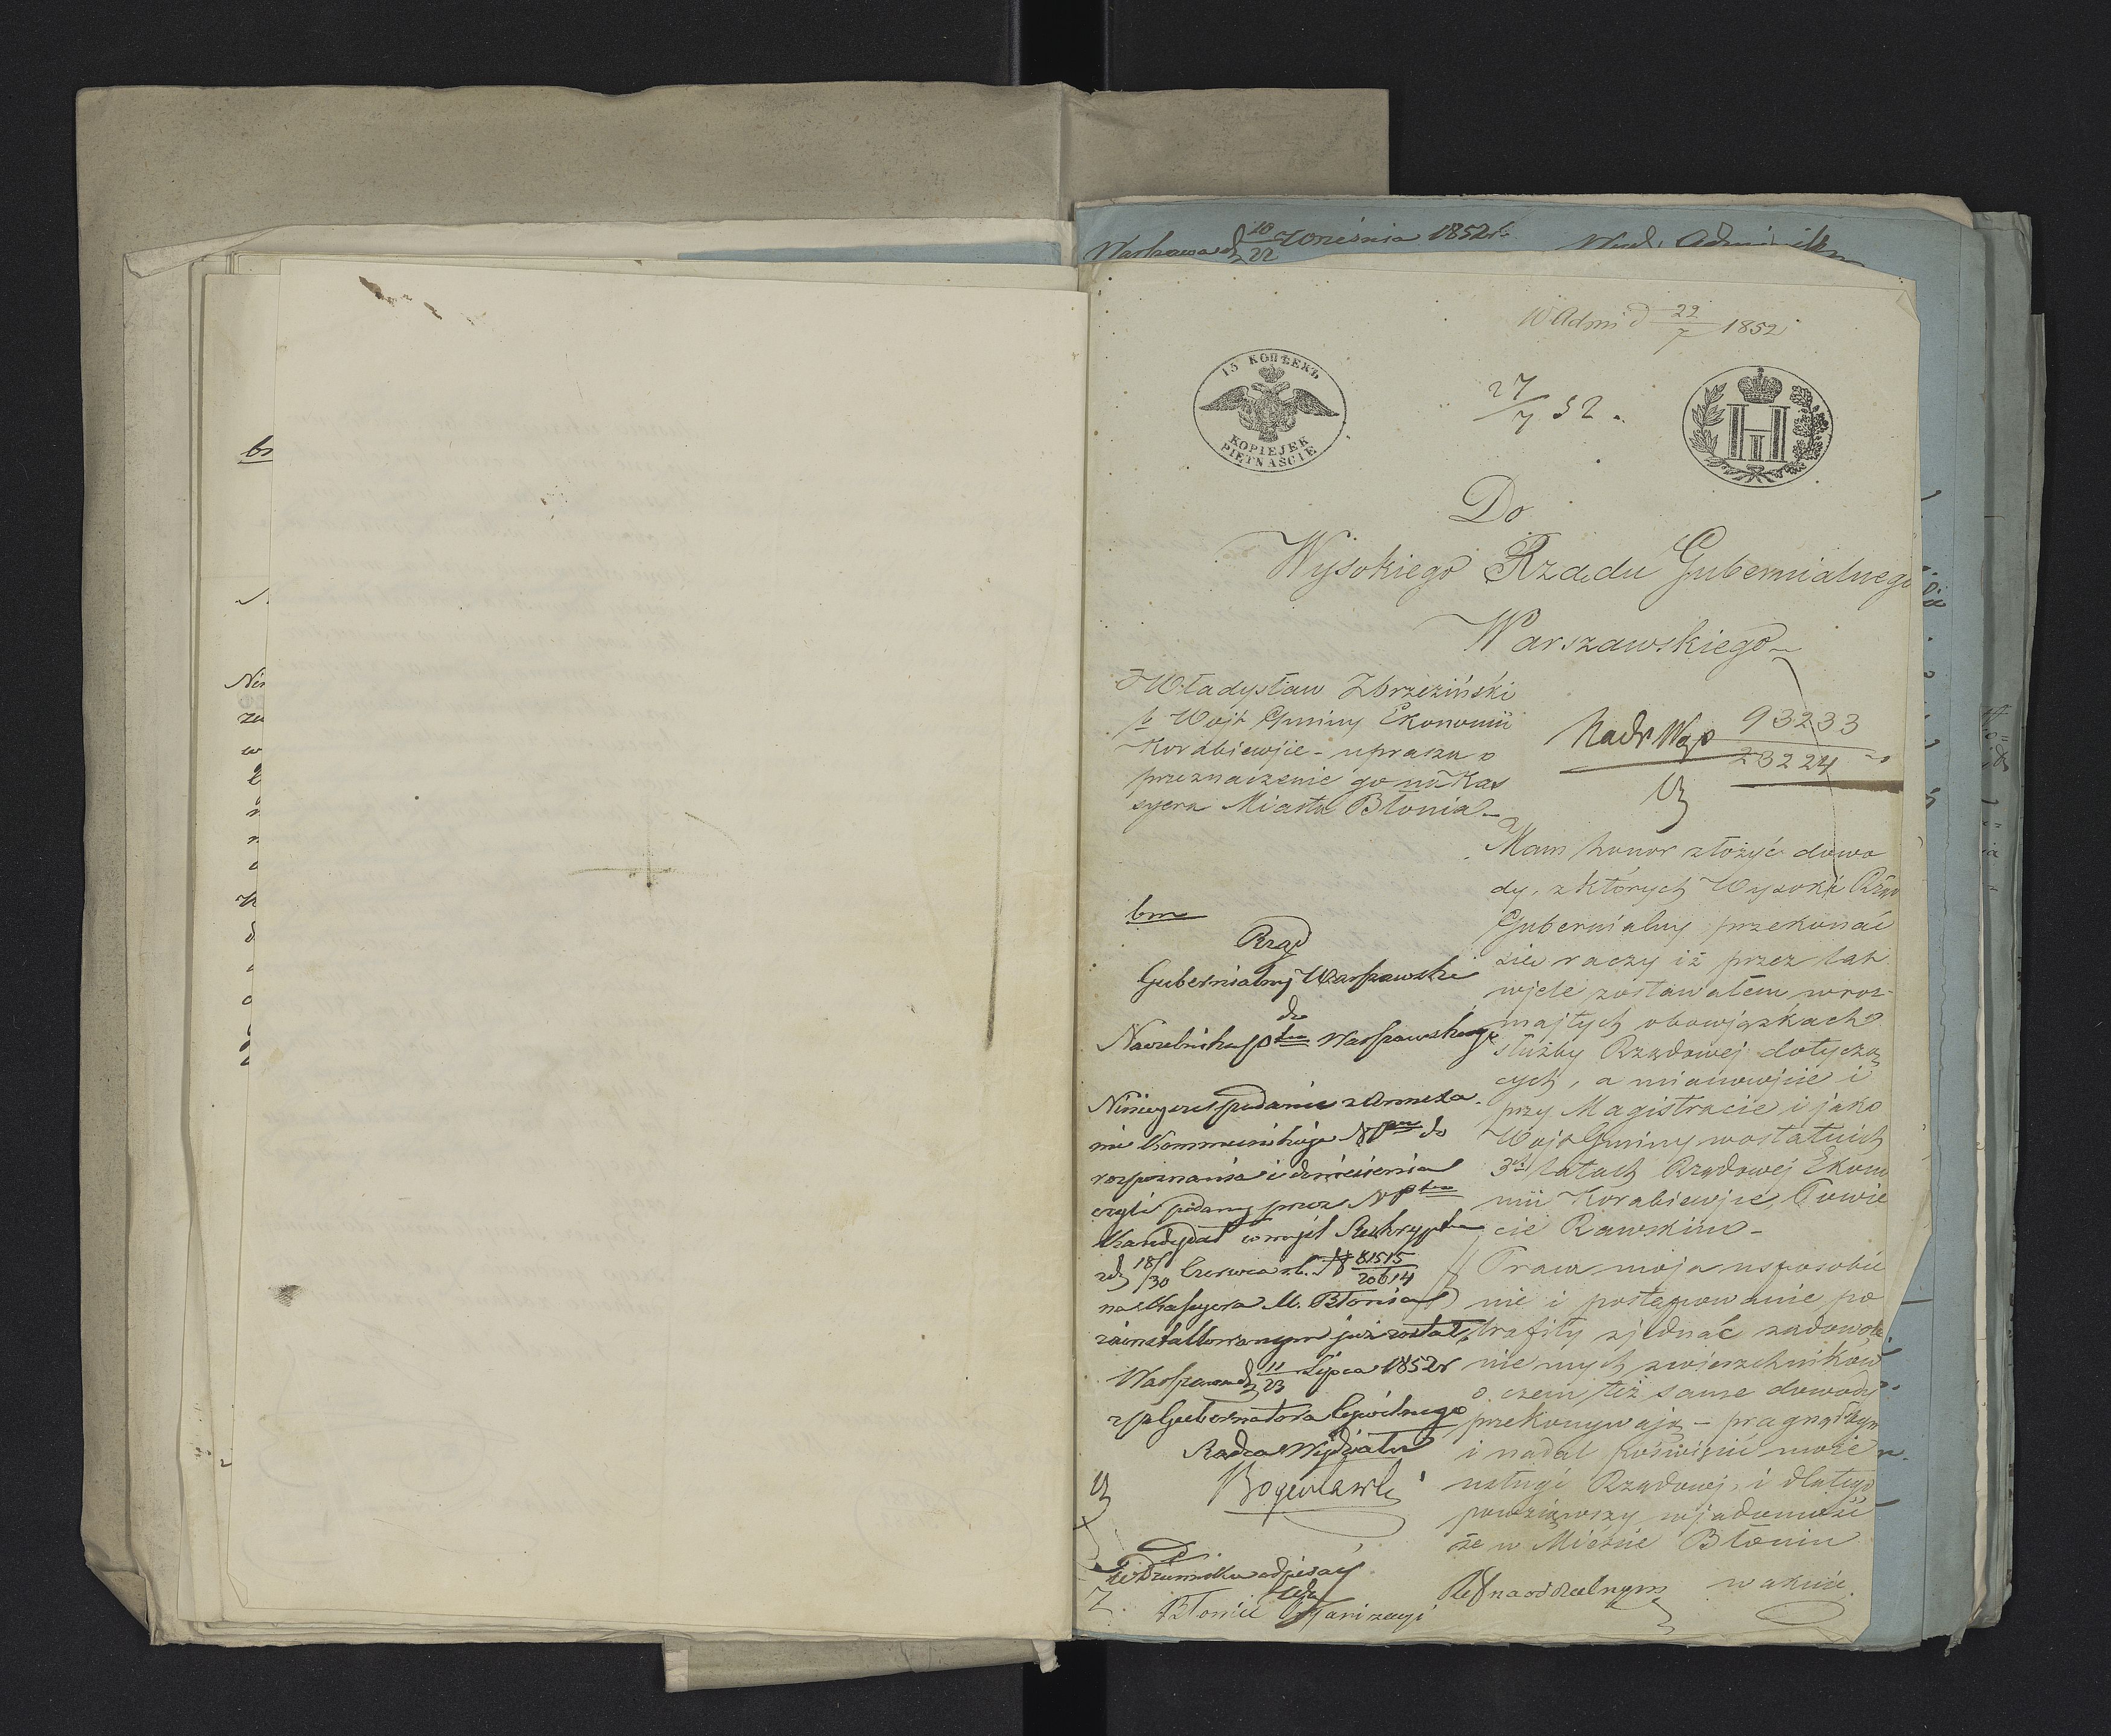 Warszawa d. 10/22 Września 1852 r.
W Adm d 29/7 1852
15 КОПѢЕКЪ
KOPIEJEK
PIĘTNAŚCIE
27/7 52.
Do
Wysokiego Rządu Gubernialnego
Warszawskiego
Władysław Zbrzeziński
b Wójt Gminy Ekonomii
Korabiewjce - uprasza o
przeznaczenie go na Kas
syera Miasta Błonia -
93233
23224
Mam honor złożyć dowo
dy, z których Wysoki Rząd
Gubernialny przekonać
sie raczy iż przez lat
wjele zostawałem w roz-
majtych obowjązkach
służby Rządowej dotyczą
cych, a mianowjcie i
przy Magistracie i jako
Wojt Gminy w ostatnich
3ch latach Rządowej Ekono
mii Korabiewjce, Powie
cie Rawskim -
Praca moja usposobie
nie i postępowanie po
trafiły zjednać zadowole
nie mych zwierzchników
o czem też same dowody
przekonywają - pragnąłbym
i nadal poświęcić może
usługi Rządowej, i dlatego
powziąwszy wjadomość
że w Mieście Błoniu
w akcie
bm
Rząd
Gubernialny Warszawski
do
Naczelnika Ptu Warszawskiego
Niniejsze podanie z Annexa
mi kommunikuje NPtu do
rozpoznania i doniesienia
czyli podany przez NPtu
Kandydat w myśl Reskryptu
z d. 18/30 Czerwca r.b. N 81515/20614
na Kassyera M. Błonia
zainstallowanym już został,
Warszawa d 11/23 Lipca 1852 r
z p Gubernatora Cywilnego
Radca Wydziału
w Dzienniku odpisać
Błonie Organizacyi